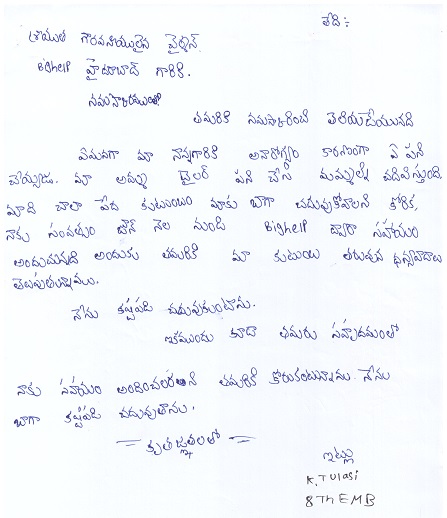 తేది :-
శ్రీయుత గౌరవనీయులైన చైర్మన్.
Bighelp హైదరాబాద్ గారికి.
నమస్కారములతో
తమరికి నమస్కరించి తెలియచేయునది
ఏమనగా మా నాన్నగారికి అనారోగ్యం కారణంగా ఏ పని
చేయ్యడు. మా అమ్మ టైలర్ పని చేసి మమ్మల్ని చదివిస్తుంది.
మాది చాలా పేద కుటుంబం మాకు బాగా చదువుకోవాలని కోరిక,
నాకు సంవత్సరం జూన్ నెల నుండి Bighelp ద్వారా సహాయం
అందుచున్నది అందుకు తమరికి మా కుటుంబ తరుపున ధన్యవాదాలు
తెలుపుతున్నాము.
నేను కష్టపడి చదువుకుంటాను.
ఇకముందు కూడా తమరు సహృదయంతో
నాకు సహాయం అందించలరతని తమరికి కోరుకుంటున్నాను. నేను
బాగా కష్టపడి చదువుతాను.
కృతజ్ఞతలతో
ఇట్లు
K. Tulasi
8Th EMB